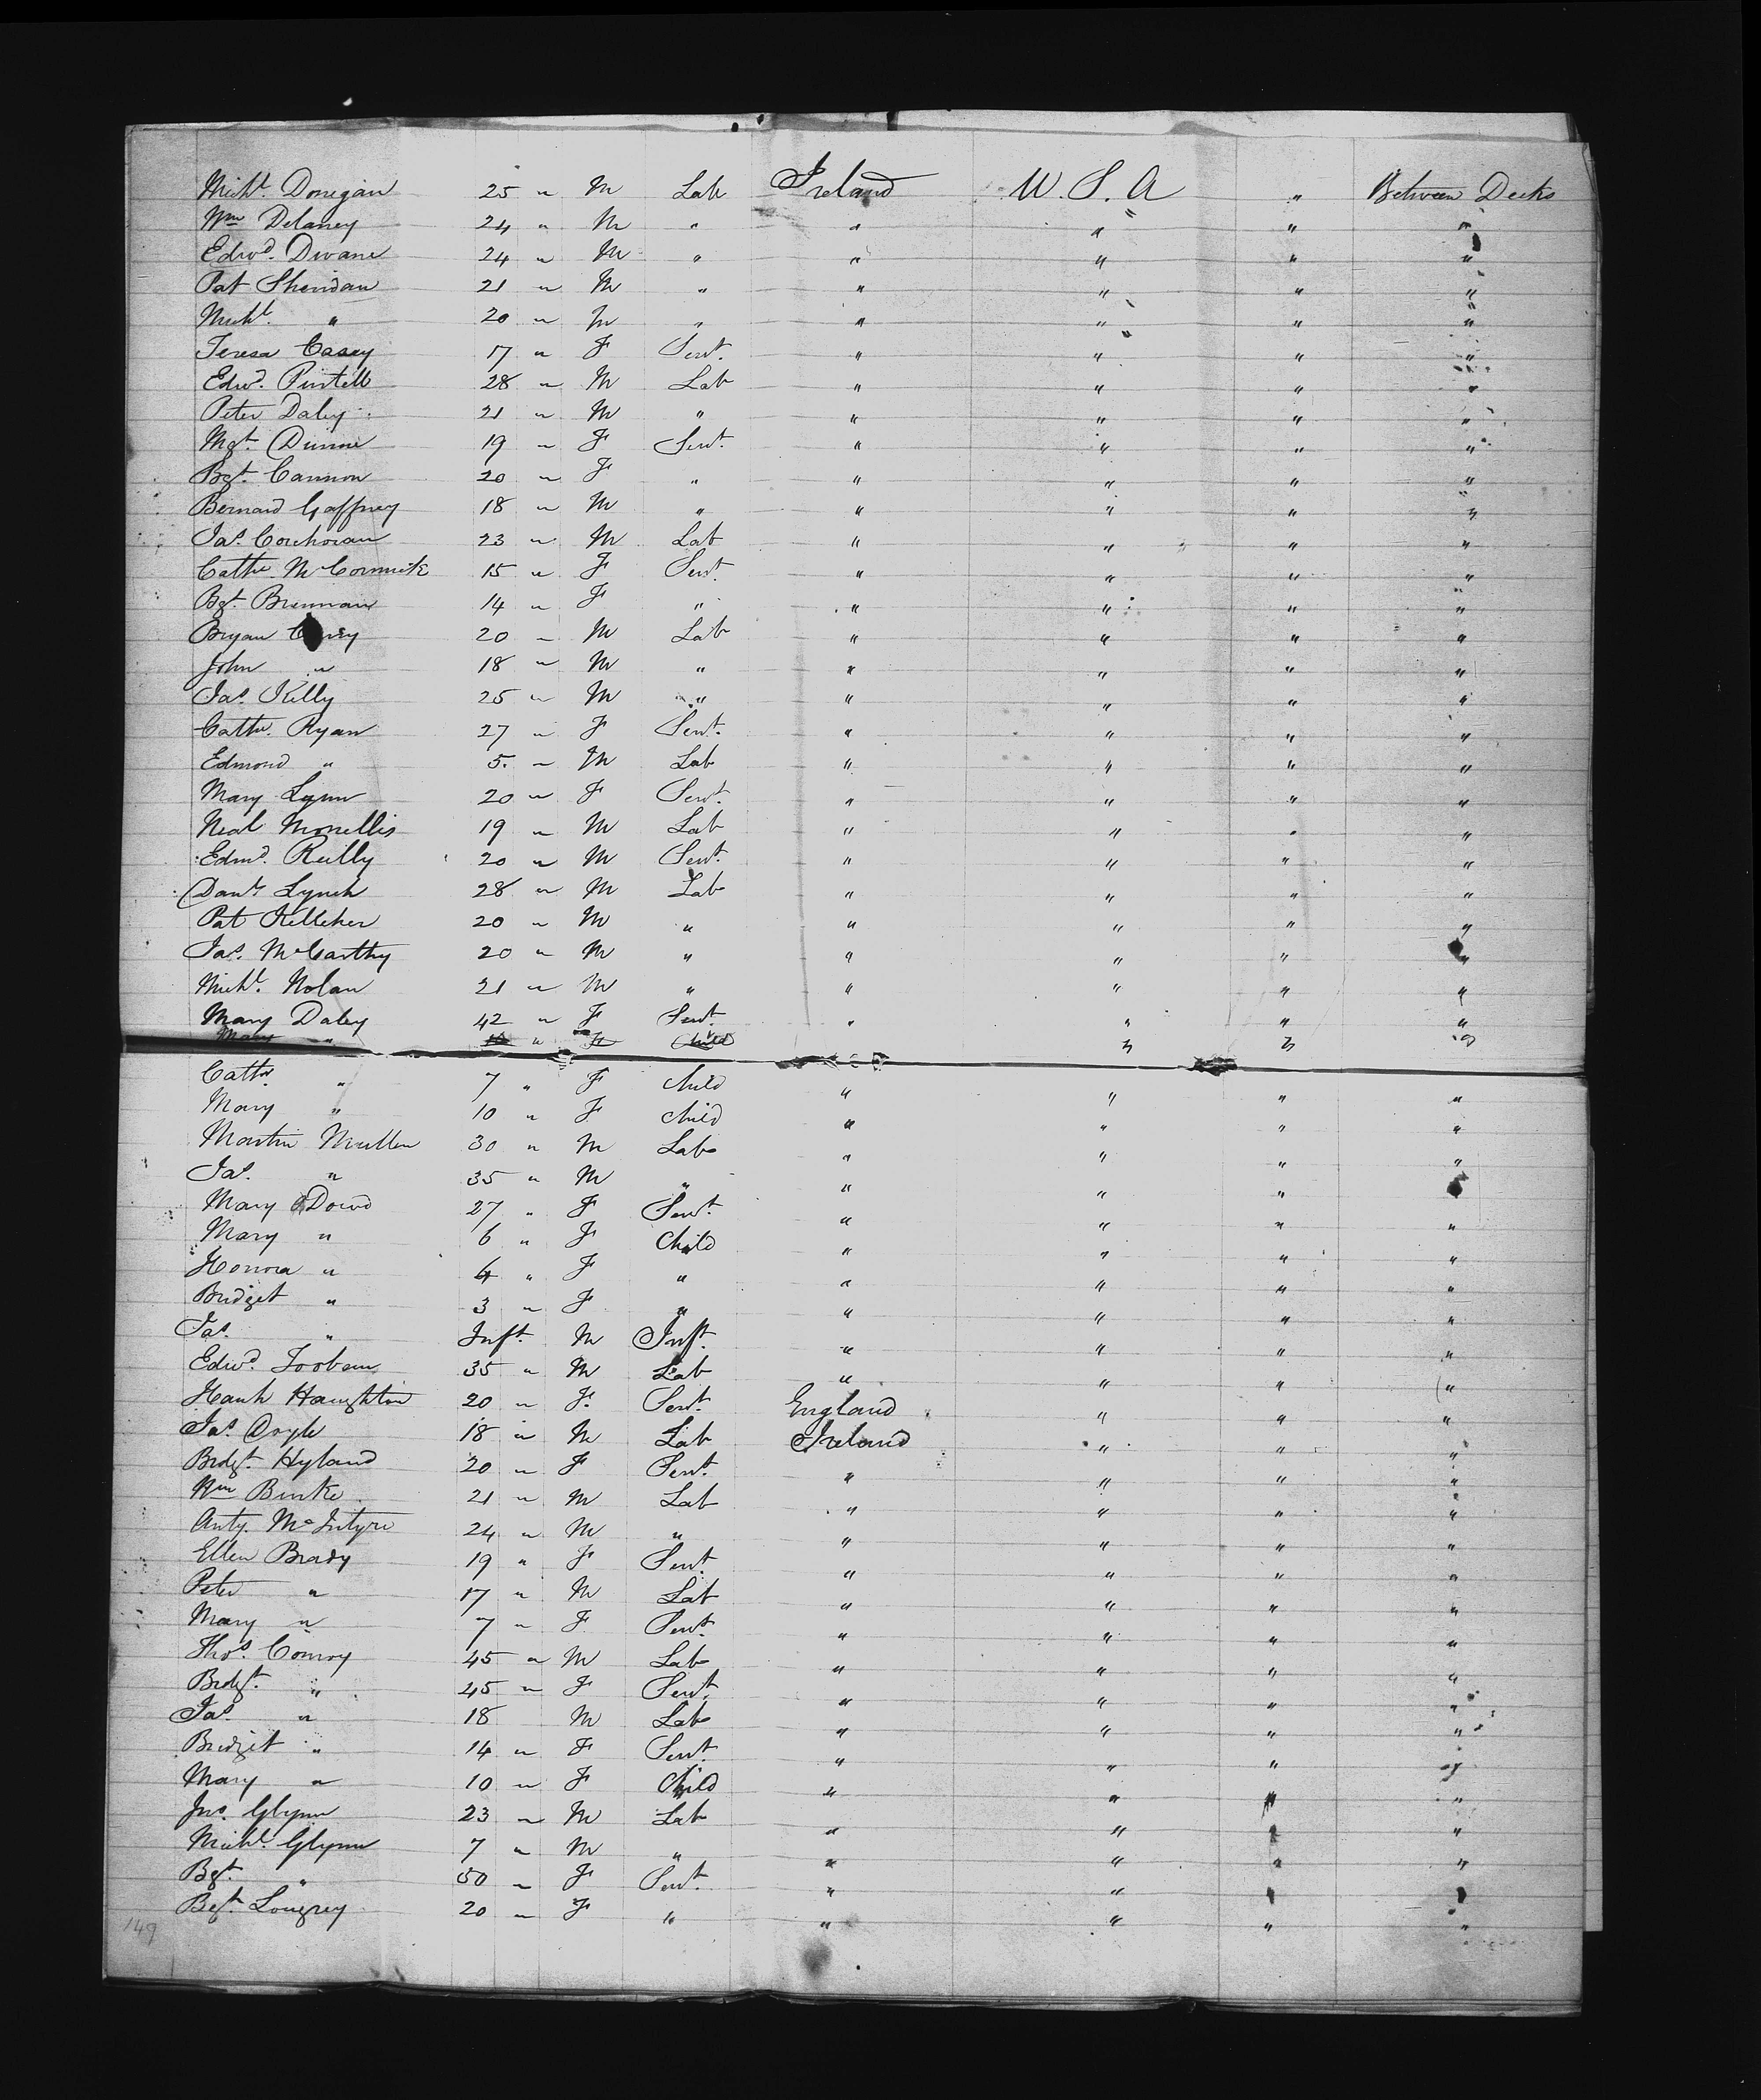 Michl. Donegan 25 " M Lab Ireland U.S.A " Between Decks
Wm Delaney 24 " M " " " " "
Edwd. Dwane 24 " M " " " " "
Pat Sheridan 21 " M " " " " "
Michl. " 20 " M " " " " "
Teresa Casey 17 " F Servt. " " " "
Edwd. Purtell 28 " M Lab " " " "
Peter Daley 21 " M " " " " "
Mgt. Dunne 19 " F Servt. " " " "
Bgt. Cannon 20 " F " " " " "
Bernard Gaffney 18 " M " " " " "
Jas. Corchoran 23 " M Lab " " " "
Cathe. McCormick 15 " F Servt. " " " "
Bgt. Brennan 14 " F " " " " "
Bryan 20 " M Lab " " " "
John " 18 " M " " " " "
Jas. Kelly 25 " M " " " " "
Cathe. Ryan 27 " F Servt. " " " "
Edmond " 5 " M Lab " " " "
Mary Lynn 20 " F Servt. " " " "
Neal Monellis 19 " M Lab " " " "
Edmd. Reilly 20 " M Servt. " " " "
Danl. Lynch 28 " M Lab " " " "
Pat Kelleher 20 " M " " " " "
Jas. McCarthy 20 " M " " " " "
Michl. Nolan 21 " M " " " " "
Mary Daley 42 " F Servt. " " " "
Mary " 10 " F Child " " "
Cathe " 7 " F Child " " " "
Mary " 10 " F Child " " " "
Martin Mullen 30 " M Lab " " " "
Jas. " 35 " M " " " " "
Mary Dowd 27 " F Servt. " " " "
Mary " 6 " F Child " " " "
Honora " 4 " F " " " " "
Bridget " 3 " F " " " " "
Jas. " Inft. M Inft. " " " "
Edwd. Toobem 35 " M Lab " " " "
Hanh Haughton 20 " F. Servt. England " " "
Jas. Doyle 18 " M Lab Ireland " " "
Bridgt. Hyland 20 " F Servt. " " " "
Wm Burke 21 " M Lab " " " "
Anty. McIntyre 24 " M " " " " "
Ellen Brady 19 " F Servt. " " " "
Peter " 17 " M Lab " " " "
Mary " 7 " F Servt. " " " "
Thos. Conroy 45 " M Lab " " " "
Bridgt. " 45 " F Servt. " " " "
Jas. " 18 M Lab " " " "
Bridget " 14 " F Servt. " " " "
Mary " 10 " F Child " " " "
Jno. Glynn 23 " M Lab " " " "
Michl. Glynn 7 " M " " " " "
Bgt. " 50 " F Servt. " " " "
Bgt. Lougrey 20 " F " " " " "
149